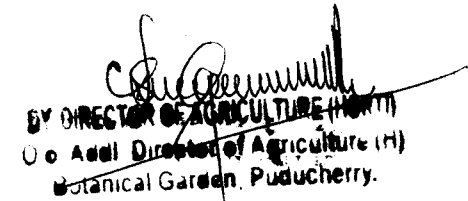 DY DIRECTOR OF AGRICULTURE (HORTI)
O/o Addl Director of Agriculture (H)
Botanical Garden, Puducherry.